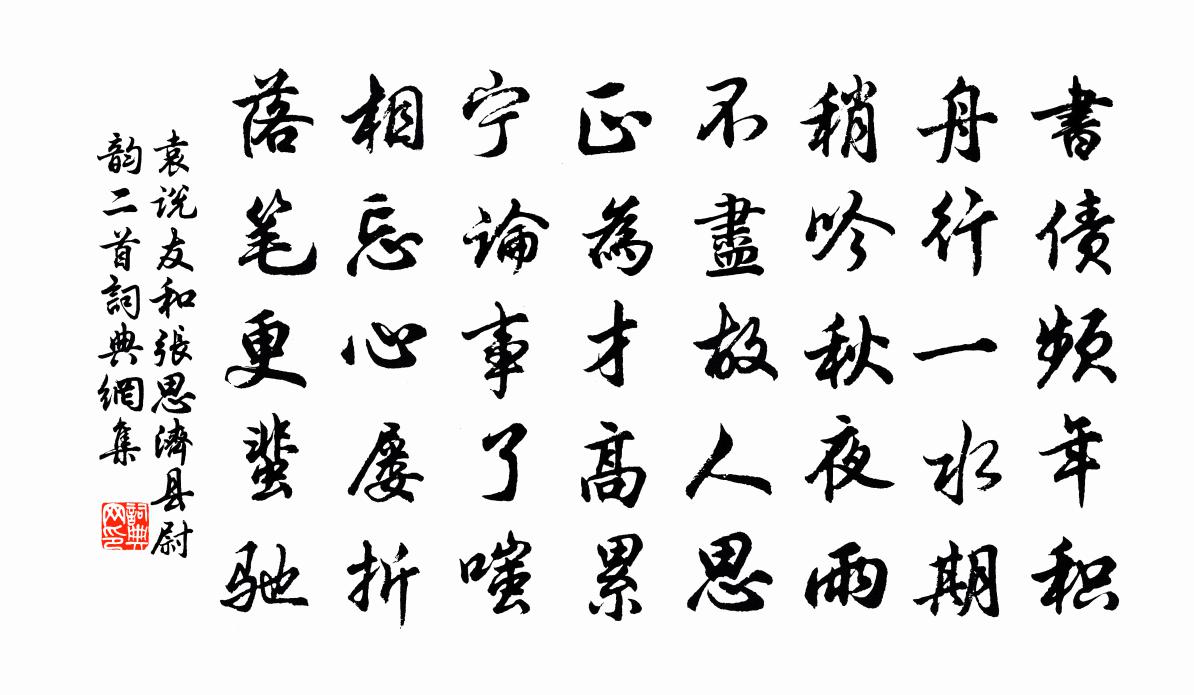 書债频年积
舟行一水期
稍吟秋夜雨
不盡故人思
正為才高累
宁論事了嗤
相忘心屡折
落笔更蜚驰
袁说友和張思濟县尉
韵二首詞典網集
詞典网印